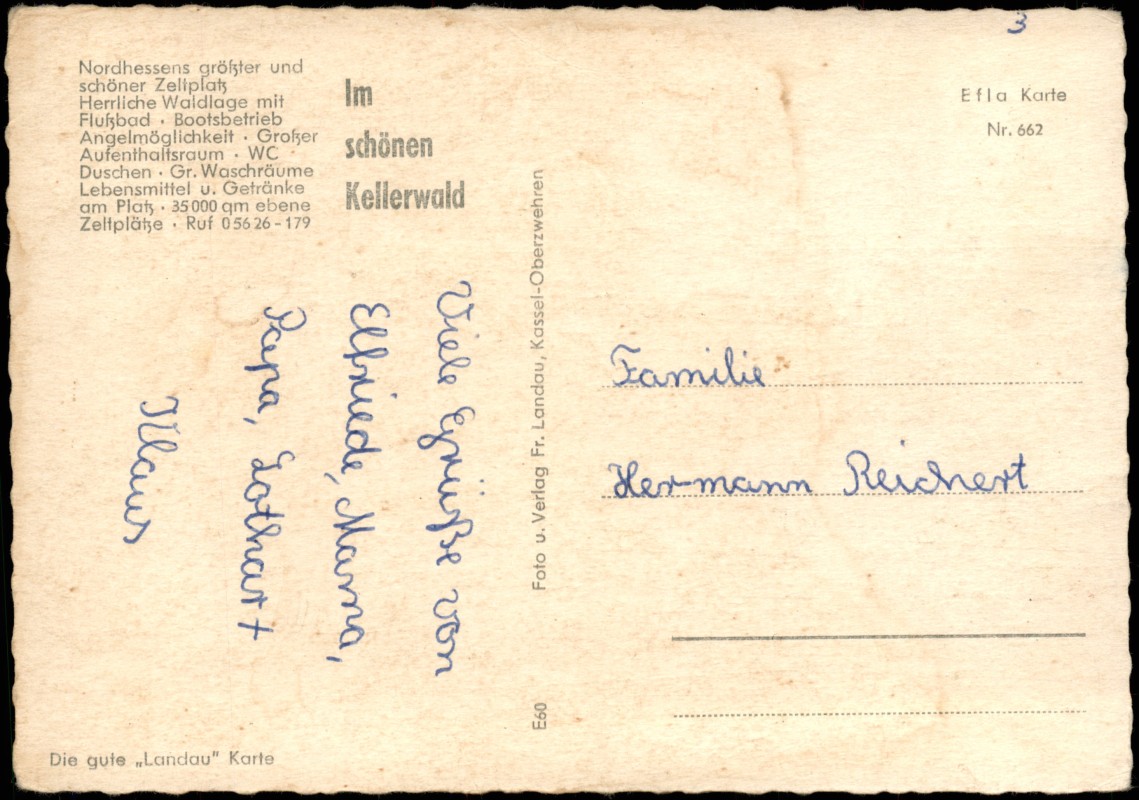 Nordhessens größter und
schöner Zeltplatz
Herrliche Waldlage mit
Flußbad · Bootsbetrieb
Angelmöglichkeit · Großer
Aufenthaltsraum · WC ·
Duschen · Gr. Waschräume
Lebensmittel u. Getränke
am Platz · 35000 qm ebene
Zeltplätze · Ruf 05626-179
Im
schönen
Kellerwald
Viele Grüße von
Elfriede, Mama,
Papa, Lothar +
Klaus
Die gute „Landau" Karte
Foto u. Verlag Fr. Landau, Kassel-Oberzwehren
E60
3
Efla Karte
Nr. 662
Familie
Hermann Reichert